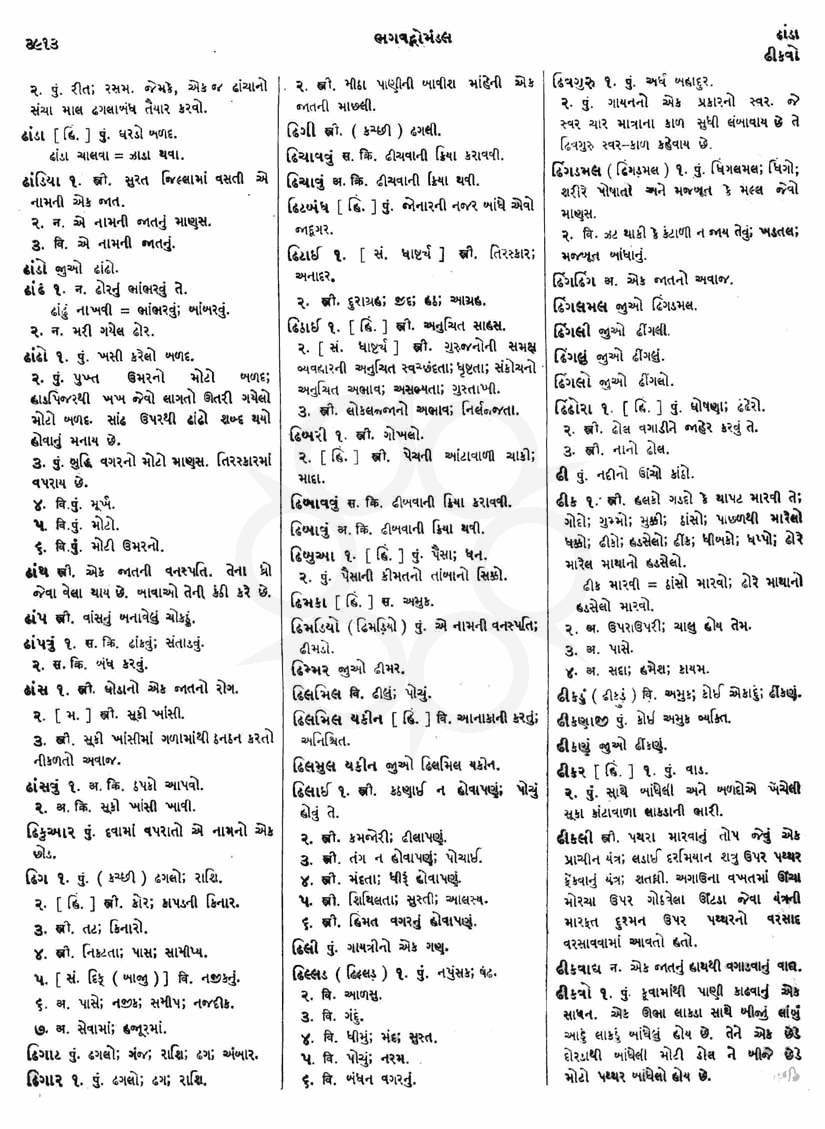 ૩૯૧૩
ભગવદ્ગોમંડલ
ઢાંડા
ઢીકવો
૨. પું. રીત; રસમ. જેમકે, એક જ ઢાંચાનો
સંચા માલ ઢગલાબંધ તૈયાર કરવો.
ઢાંડા [ હિં. ] પું. ઘરડો બળદ.
ઢાંડા ચાલવા = ઝાડા થવા.
ઢાંઢિયા ૧. સ્ત્રી. સુરત જિલ્લામાં વસતી એ
નામની એક જાત.
૨. ન. એ નામની જાતનું માણસ.
૩. વિ. એ નામની જાતનું.
ઢાંડો જુઓ ઢાંઢો.
ઢાંઢું ૧. ન. ઢોરનું ભાંભરવું તે.
ઢાંઢું નાખવી = ભાંભરવું; બાંબરવું.
૨. ન. મરી ગયેલ ઢોર.
ઢાંઢો ૧. પું. ખસી કરેલો બળદ.
૨. પું. પુખ્ત ઉમરનો મોટો બળદ;
હાડપિંજરથી ખખ જેવો લાગતો ઊતરી ગયેલો
મોટો બળદ. સાંઢ ઉપરથી ઢાંઢો શબ્દ થયો
હોવાનું મનાય છે.
૩. પું. બુદ્ધિ વગરનો મોટો માણસ. તિરસ્કારમાં
વપરાય છે.
૪. વિ.પું. મૂર્ખ.
૫. વિ.પું. મોટો.
૬. વિ.પું. મોટી ઉમરનો.
ઢાંથ સ્ત્રી. એક જાતની વનસ્પતિ. તેના ધ્રો
જેવા વેલા થાય છે. બાવાઓ તેની કંઠી કરે છે.
ઢાંપ સ્ત્રી. વાંસનું બનાવેલું ચોકઠું.
ઢાંપવું ૧. સ. ક્રિ. ઢાંકવું; સંતાડવું.
૨. સ. ક્રિ. બંધ કરવું.
ઢાંસ ૧. સ્ત્રી. ઘોડાનો એક જાતનો રોગ.
૨. [ મ. ] સ્ત્રી. સૂકી ખાંસી.
૩. સ્ત્રી. સૂકી ખાંસીમાં ગળામાંથી ઠનઠન કરતો
નીકળતો અવાજ.
ઢાંસવું ૧. અ. ક્રિ. ઠપકો આપવો.
૨. અ. ક્રિ. સૂકો ખાંસી ખાવી.
ઢિકુઆર પું. દવામાં વપરાતો એ નામનો એક
છોડ.
ઢિગ ૧. પું. ( કચ્છી ) ઢગલો; રાશિ.
૨. [ હિં. ] સ્ત્રી. કોર; કાપડની કિનાર.
૩. સ્ત્રી. તટ; કિનારો.
૪. સ્ત્રી. નિકટતા; પાસ; સામીપ્ય.
૫. [ સં. દિક્ ( બાજુ ) ] વિ. નજીકનું.
૬. અ. પાસે; નજીક; સમીપ; નજદીક.
૭. અ. સેવામાં; હજૂરમાં.
ઢિગાટ પું. ઢગલો; ગંજ; રાશિ; ઢગ; અંબાર.
ઢિગાર ૧. પું. ઢગલો; ઢગ; રાશિ.
૨. સ્ત્રી. મીઠા પાણીની બાવીશ માંહેની એક
જાતની માછલી.
ઢિગી સ્ત્રી. ( કચ્છી ) ઢગલી.
ઢિચાવવું સ. ક્રિ. ઢીચવાની ક્રિયા કરાવવી.
ઢિચાવું અ. ક્રિ. ઢીચવાની ક્રિયા થવી.
ઢિટબંધ [ હિં. ] પું. જોનારની નજર બાંધે એવો
જાદૂગર.
ઢિટાઈ ૧. [ સં. ધાષ્ટર્ય ] સ્ત્રી. તિરસ્કાર;
અનાદર.
૨. સ્ત્રી. દુરાગ્રહ; જીદ; હઠ; આગ્રહ.
ઢિઠાઈ ૧. [ હિં. ] સ્ત્રી. અનુચિત સાહસ.
૨. [ સં. ધાષ્ટર્ય ] સ્ત્રી. ગુરુજનોની સમક્ષ
વ્યવહારની અનુચિત સ્વચ્છંદતા; ધૃષ્ટતા; સંકોચનો
અનુચિત અભાવ; અસભ્યતા; ગુસ્તાખી.
૩. સ્ત્રી. લોકલજ્જાનો અભાવ; નિર્લજ્જતા.
ઢિબરી ૧. સ્ત્રી. ગોખલો.
૨. [ હિં. ] સ્ત્રી. પેચની આંટાવાળી ચાકી;
માદા.
ઢિબાવવું સ. ક્રિ. ઢીબવાની ક્રિયા કરાવવી.
ઢિબાવું અ. ક્રિ. ઢીબવાની ક્રિયા થવી.
ઢિબુઆ ૧. [ હિં. ] પું. પૈસા; ધન.
૨. પું. પૈસાની કીમતનો તાંબાનો સિક્કો.
ઢિમકા [ હિં. ] સ. અમુક.
ઢિમડિયો ( ઢિમડ઼િયો ) પું. એ નામની વનસ્પતિ;
ઢીમડો.
ઢિમ્મર જુઓ ઢીમર.
ઢિલમિલ વિ. ઢીલું; પોચું.
ઢિલમિલ યકીન [ હિં. ] વિ. આનાકાની કરતું;
અનિશ્ચિત.
ઢિલમુલ યકીન જુઓ ઢિલમિલ યકીન.
ઢિલાઈ ૧. સ્ત્રી. કઠણાઈ ન હોવાપણું; પોચું
હોવું તે.
૨. સ્ત્રી. કમજોરી; ઢીલાપણું.
૩. સ્ત્રી. તંગ ન હોવાપણું; પોચાઈ.
૪. સ્ત્રી. મંદતા; ધીરું હોવાપણું.
૫. સ્ત્રી. શિથિલતા; સુરતી; આલસ્ય.
૬. સ્ત્રી. હિંમત વગરનું હોવાપણું.
ઢિલી પું. ગાયત્રીનો એક ગણ.
ઢિલ્લડ ( ઢિલ્લડ઼ ) ૧. પું. નપુંસક; ષંઢ.
૨. વિ. આળસુ.
૩. વિ. ગંદું.
૪. વિ. ધીમું; મંદ; સુસ્ત.
૫. વિ. પોચું; નરમ.
૬. વિ. બંધન વગરનું.
ઢિવગુરુ ૧. પું. અર્ધ બહાદુર.
૨. પું. ગાયનનો એક પ્રકારનો સ્વર. જે
સ્વર ચાર માત્રાના કાળ સુધી લંબાવાય છે તે
ઢિવગુરુ સ્વર-કાળ કહેવાય છે.
ઢિંગડમલ ( ઢિંગડ઼મલ ) ૧. પું. ધિંગલમલ; ધિંગો;
શરીરે પોષાતો અને મજબૂત કે મલ્લ જેવો
માણસ.
૨. વિ. ઝટ થાકી કે કંટાળી ન જાય તેવું; ખડતલ;
મજબૂત બાંધાનું.
ઢિંગઢિંગ અ. એક જાતનો અવાજ.
ઢિંગલમલ જુઓ ઢિંગડમલ.
ઢિંગલી જુઓ ઢીંગલી.
ઢિંગલું જુઓ ઢીંગલું.
ઢિંગલો જુઓ ઢીંગલો.
ઢિંઢોરા ૧. [ હિં. ] પું. ઘોષણા; ઢંઢેરો.
૨. સ્ત્રી. ઢોલ વગાડીને જાહેર કરવું તે.
૩. સ્ત્રી. નાનો ઢોલ.
ઢી પું. નદીનો ઊંચો કાંઠો.
ઢીક ૧. સ્ત્રી. હલકો ગડદો કે થાપટ મારવી તે;
ગોદો; ગુમ્મો; મુક્કી; ઠાંસો; પાછળથી મારેલો
ધક્કો; ઢીકો; હડસેલો; ઢીંક; ધીબકો; ધપ્પો; ઢોરે
મારેલ માથાનો હડસેલો.
ઢીક મારવી = ઠાંસો મારવો; ઢોરે માથાનો
હડસેલો મારવો.
૨. અ. ઉપરાઉપરી; ચાલુ હોય તેમ.
૩. અ. પાસે.
૪. અ. સદા; હમેશ; કાયમ.
ઢીકડું ( ઢીકડ઼ું ) વિ. અમુક; કોઈ એકાદું; ઢીંકણું.
ઢીકણાજી પું. કોઈ અમુક વ્યક્તિ.
ઢીકણું જુઓ ઢીંકણું.
ઢીકર [ હિં. ] ૧. પું. વાડ.
૨. પું. સાથે બાંધેલી અને બળદોએ ખેંચેલી
સૂકા કાંટાવાળા લાકડાની ભારી.
ઢીકલી સ્ત્રી. પથરા મારવાનું તોપ જેવું એક
પ્રાચીન યંત્ર; લડાઈ દરમિયાન શત્રુ ઉપર પથ્થર
ફેંકવાનું યંત્ર; શતઘ્ની. અગાઉના વખતમાં ઊંચા
મોરચા ઉપર ગોઠવેલા ઊંટડા જેવા યંત્રની
મારફત દુશ્મન ઉપર પથ્થરનો વરસાદ
વરસાવવામાં આવતો હતો.
ઢીકવાદ્ય ન. એક જાતનું હાથથી વગાડવાનું વાદ્ય.
ઢીકવો ૧. પું. કૂવામાંથી પાણી કાઢવાનું એક
સાધન. એક ઊભા લાકડા સાથે બીજું લાંબું
આડું લાકડું બાંધેલું હોય છે. તેને એક છેડે
દોરડાથી બાંધેલી મોટી ડોલ ને બીજે છેડે
મોટો પથ્થર બાંધેલો હોય છે.